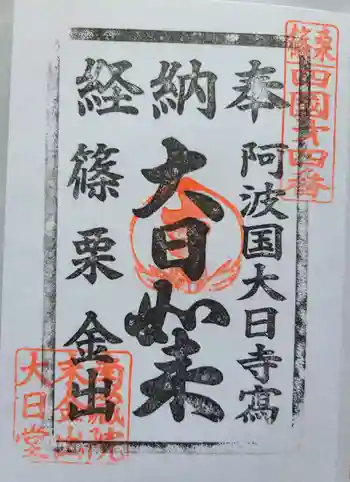 篠栗
四國第四番
奉納経
阿波国大日寺寫
大日如来
篠栗金出
南蔵院
大日堂